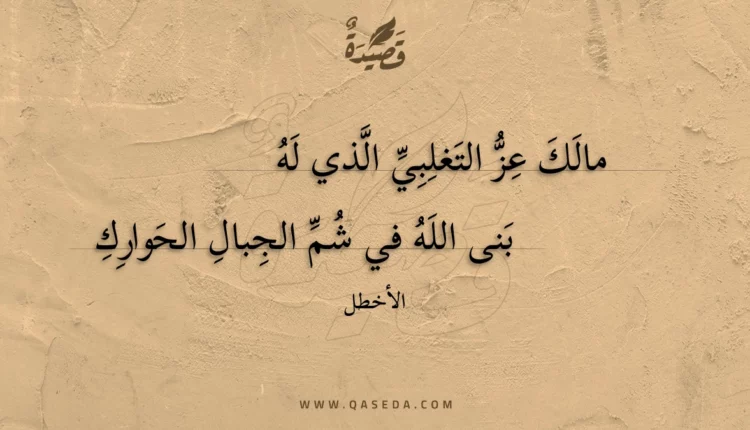 قَصِيْدَةٌ
مالَكَ عِزُّ التَغلِبِيِّ الَّذي لَهُ
بَنى اللَهُ في شُمِّ الجِبالِ الحَوارِكِ
الأخطل
WWW.QASEDA.COM